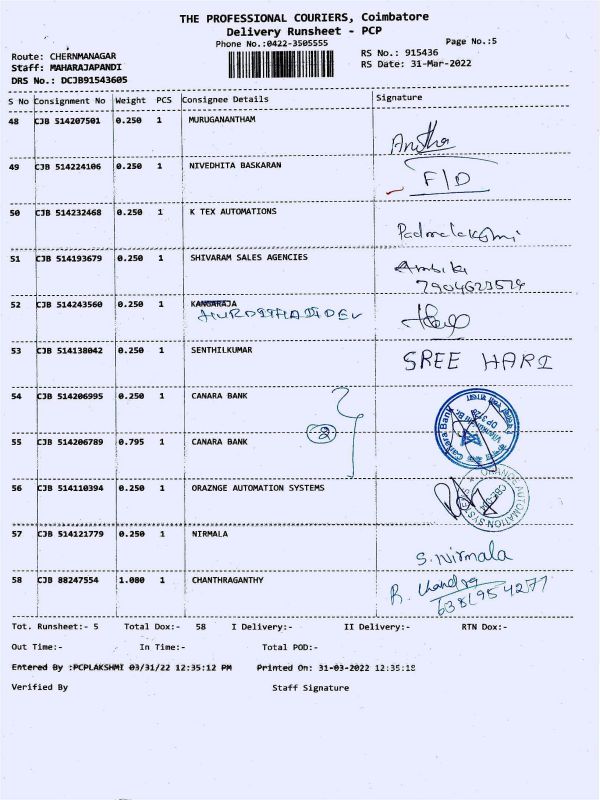 THE PROFESSIONAL COURIERS, Coimbatore
Delivery Runsheet - PCP
Phone No.:0422-3505555
Page No.:5
Route: CHERNMANAGAR
RS No.: 915436
Staff: MAHARAJAPANDI
RS Date: 31-Mar-2022
DRS No.: DCJB91543605
S No Consignment No Weight PCS Consignee Details Signature
48 CJB 514207501 0.250 1 MURUGANANTHAM
Anitha
49 CJB 514224106 0.250 1 NIVEDHITA BASKARAN
F/D
50 CJB 514232468 0.250 1 K TEX AUTOMATIONS
Padmalakshmi
51 CJB 514193679 0.250 1 SHIVARAM SALES AGENCIES
Ambika
52 CJB 514243560 0.250 1 KANGARAJA
53 CJB 514138042 0.250 1 SENTHILKUMAR
SREE HARI
54 CJB 514206995 0.250 1 CANARA BANK
2
Canara Bank
DP 3728
55 CJB 514206789 0.795 1 CANARA BANK
56 CJB 514110394 0.250 1 ORAZNGE AUTOMATION SYSTEMS
ORANGE AUTOMATION SYSTEMS
57 CJB 514121779 0.250 1 NIRMALA
S. Nirmala
58 CJB 88247554 1.080 1 CHANTHRAGANTHY
R. Chandra
6381954277
Tot. Runsheet:- 5 Total Dox:- 58 I Delivery:- II Delivery:- RTN Dox:-
Out Time:- In Time:- Total POD:-
Entered By :PCPLAKSHMI 03/31/22 12:35:12 PM Printed On: 31-03-2022 12:35:18
Verified By Staff Signature